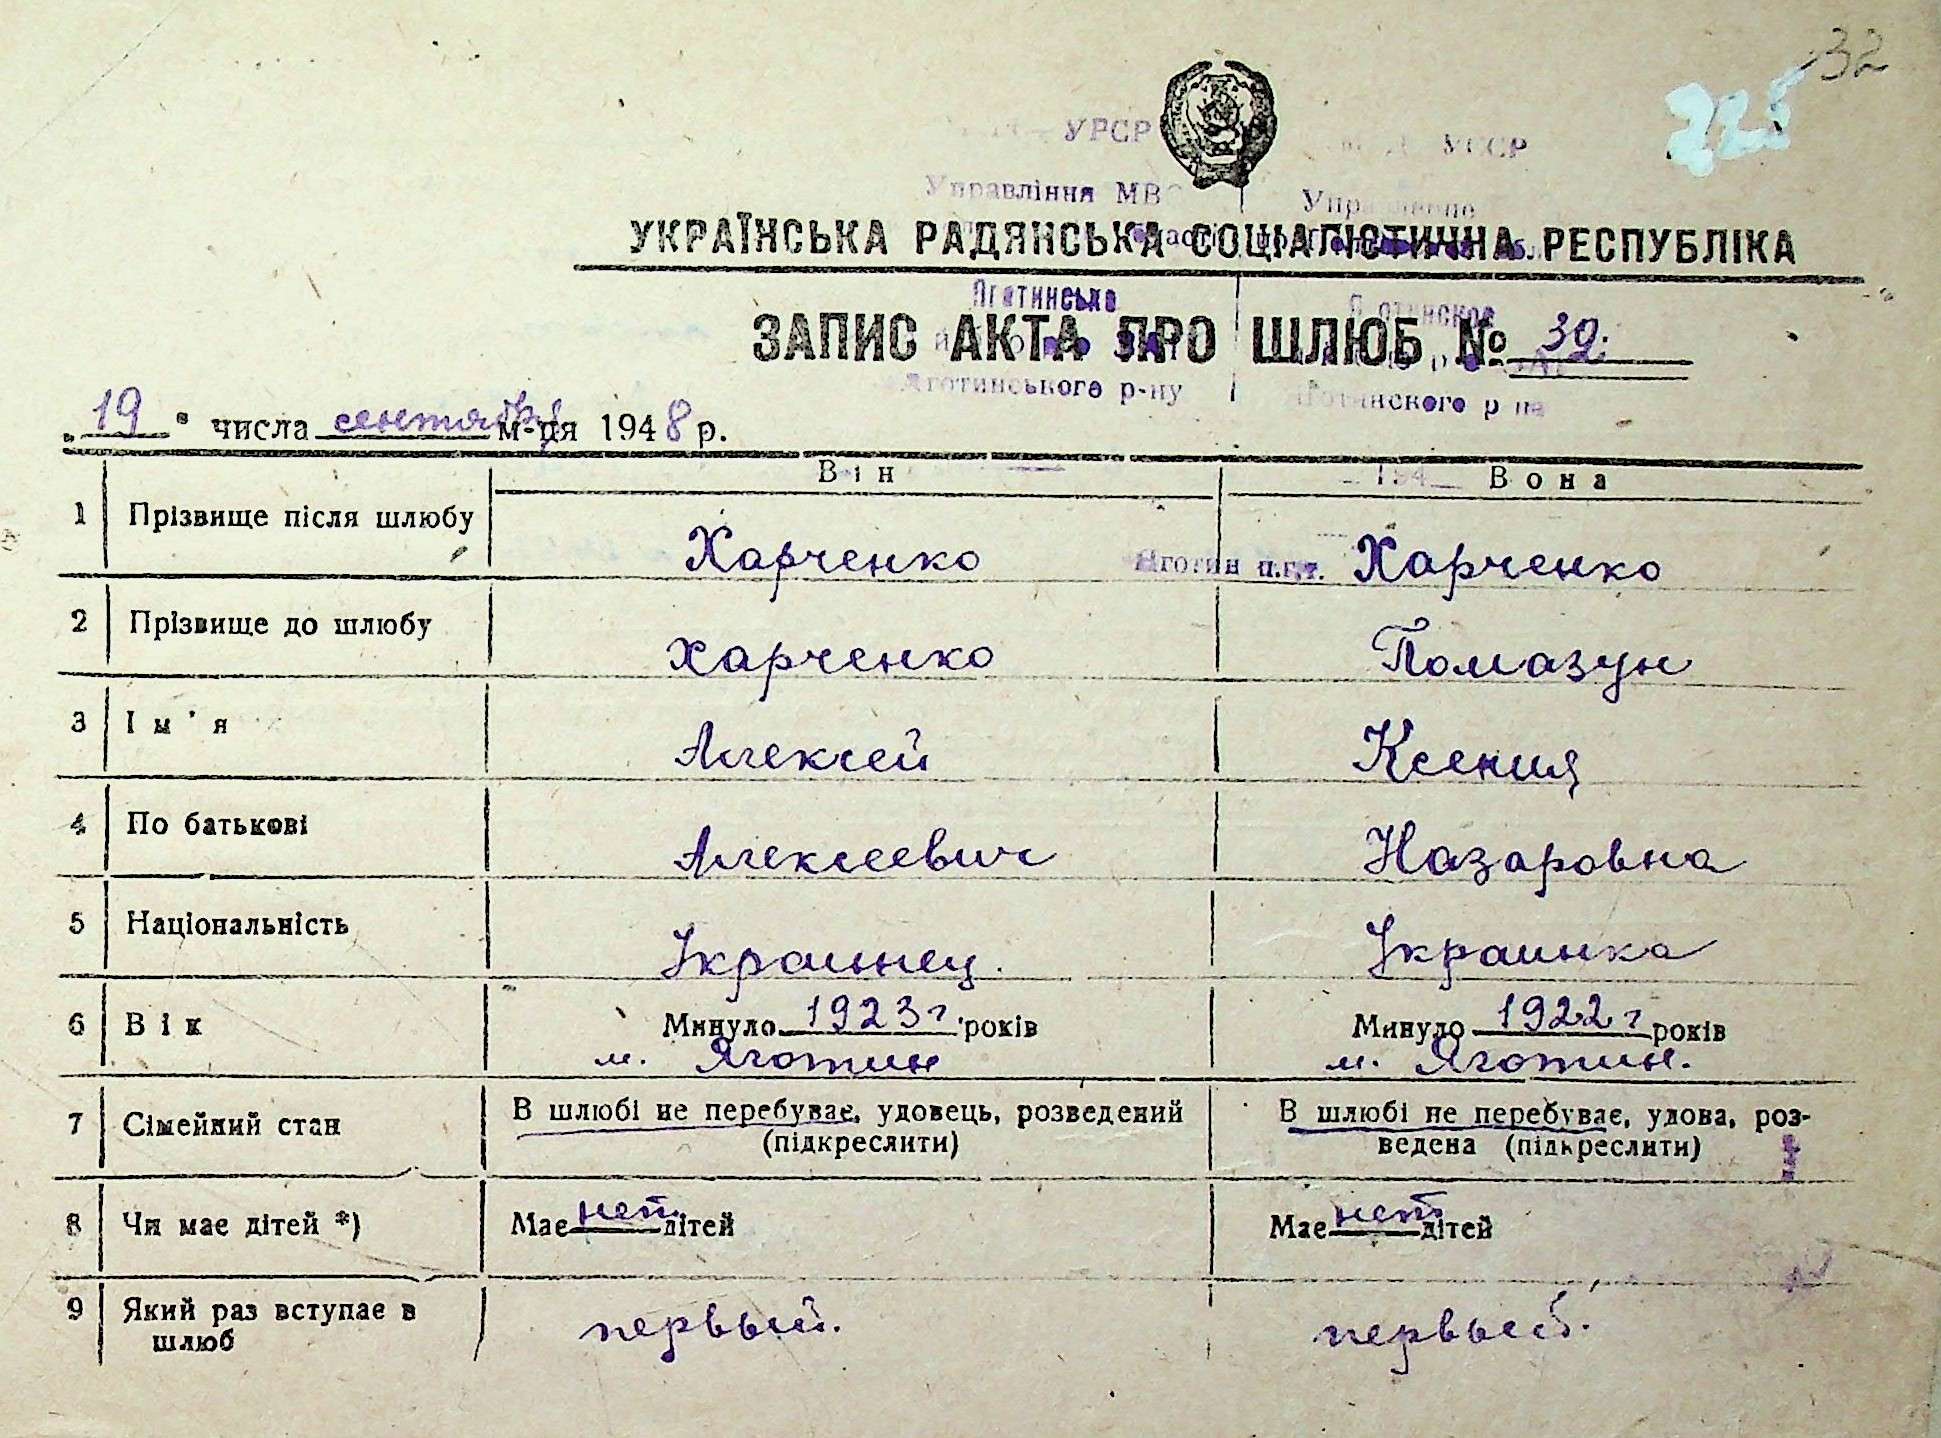 32
225
УРСР УССР
Управління МВС Управление
УКРАЇНСЬКА РАДЯНСЬКА СОЦІАЛІСТИЧНА РЕСПУБЛІКА
Яготинське Яготинское
ЗАПИС АКТА ПРО ШЛЮБ № 39.
Яготинського р-ну Яготинского р-на
„19" числа сентября м-ця 1948 р.
Він 194 Вона
1 Прізвище після шлюбу Харченко Яготин п.г.т. Харченко
2 Прізвище до шлюбу Харченко Помазун
3 Ім'я Алексей Ксения
4 По батькові Алексеевич Назаровна
5 Національність Украинец. Украинка
6 Вік Минуло 1923 г. років Минуло 1922 г років
м. Яготин м. Яготин.
7 Сімейний стан В шлюбі не перебуває, удовець, розведений В шлюбі не перебуває, удова, роз-
(підкреслити) ведена (підкреслити)
8 Чи має дітей *) Має нет дітей Має нет дітей
9 Який раз вступає в
шлюб первый. первый.